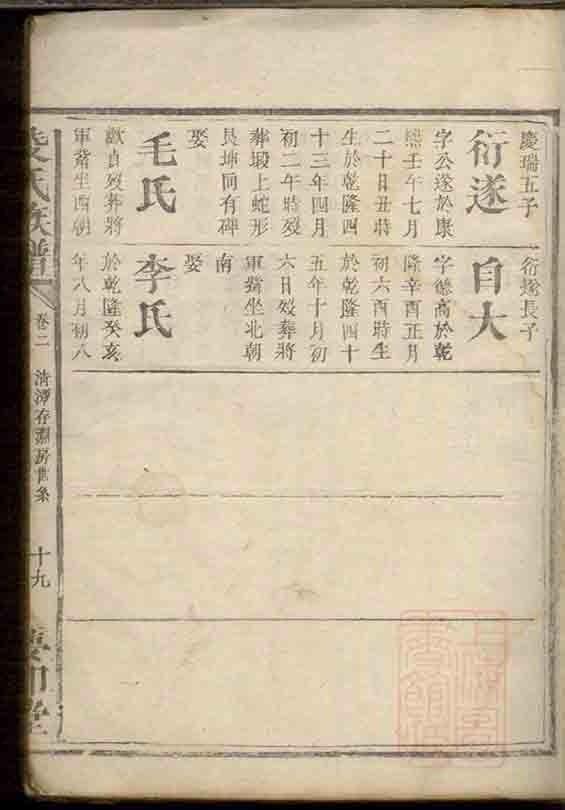 慶瑞五子
衍遂
字公遂於康
熙壬午七月
二十日丑時
生於乾隆四
十三年四月
初二午時歿
葬塅上蛇形
艮坤同有碑
娶
毛氏
歿葬將
軍 坐酉朝
衍遂長子
自大
字德高於乾
隆辛酉正月
初六酉時生
於乾隆四十
五年十月初
六日歿葬將
軍 坐北朝
南
娶
李氏
於乾隆癸亥
年八月初八
氏族譜
卷二
清潭存淵房世系
十九